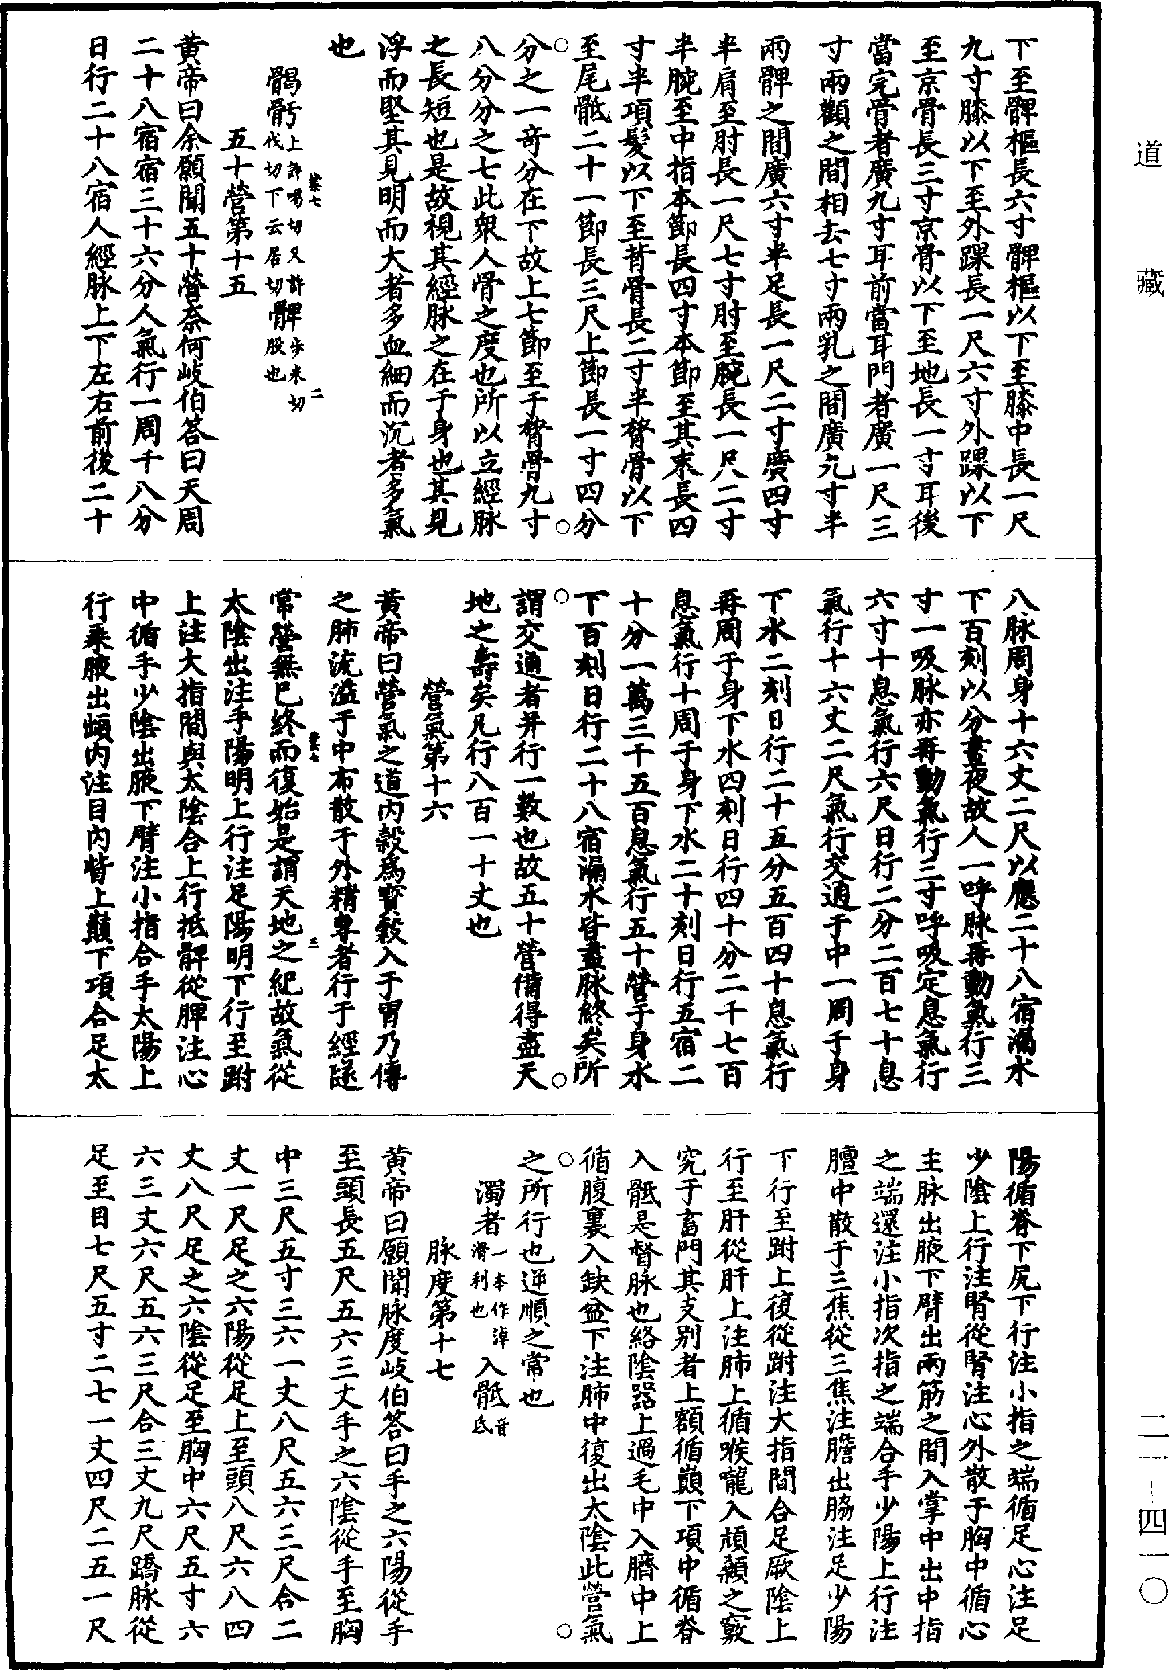 道藏
下至髀樞長六寸髀樞以下至膝中長一尺
九寸膝以下至外踝長一尺六寸外踝以下
至京骨長三寸京骨以下至地長一寸耳後
當完骨者廣九寸耳前當耳門者廣一尺三
寸兩顴之間相去七寸兩乳之間廣九寸半
兩髀之間廣六寸半足長一尺二寸廣四寸
半肩至肘長一尺七寸肘至腕長一尺二寸
半腕至中指本節長四寸本節至其末長四
寸半項髮以下至背骨長二寸半膂骨以下
至尾骶二十一節長三尺上節長一寸四分
分之一奇分在下故上七節至于膂骨九寸
八分分之七此衆人骨之度也所以立經脉
之長短也是故視其經脉之在于身也其見
浮而堅其見明而大者多血細而沉者多氣
也
䯏骬上許曷切又許伐切下云居切髀步米切髀股也
五十營第十五
黃帝曰余願聞五十營奈何岐伯答曰天周
二十八宿宿三十六分人氣行一周千八分
日行二十八宿人經脉上下左右前後二十
八脉周身十六丈二尺以應二十八宿漏水
下百刻以分晝夜故人一呼脉再動氣行三
寸一吸脉亦再動氣行三寸呼吸定息氣行
六寸十息氣行六尺日行二分二百七十息
氣行十六丈二尺氣行交通于中一周于身
下水二刻日行二十五分五百四十息氣行
再周于身下水四刻日行四十分二千七百
息氣行十周于身下水二十刻日行五宿二
十分一萬三千五百息氣行五十營于身水
下百刻日行二十八宿漏水皆盡脉終矣所
謂交通者并行一數也故五十營備得盡天
地之壽矣凡行八百一十丈也
營氣第十六
黃帝曰營氣之道內穀爲寶穀入于胃乃傳
之肺流溢于中布散于外精專者行于經隧
常營無已終而復始是謂天地之紀故氣從
太陰出注手陽明上行注足陽明下行至跗
上注大指間與太陰合上行抵髀從脾注心
中循手少陰出腋下臂注小指合手太陽上
行乘腋出䪼內注目內眥上巔下項合足太
陽循脊下尻下行注小指之端循足心注足
少陰上行注腎從腎注心外散于胸中循心
主脉出腋下臂出兩筋之間入掌中出中指
之端還注小指次指之端合手少陽上行注
膻中散于三焦從三焦注膽出脇注足少陽
下行至跗上復從跗注大指間合足厥陰上
行至肝從肝上注肺上循喉嚨入頏顙之竅
究于畜門其支別者上額循巔下項中循脊
入骶是督脉也絡陰器上過毛中入臍中上
循腹裏入缺盆下注肺中復出太陰此營氣
之所行也逆順之常也
濁者一本作淖滑利也入骶音氐
脉度第十七
黃帝曰願聞脉度岐伯答曰手之六陽從手
至頭長五尺五六三丈手之六陰從手至胸
中三尺五寸三六一丈八尺五六三尺合二
丈一尺足之六陽從足上至頭八尺六八四
丈八尺足之六陰從足至胸中六尺五寸六
六三丈六尺五六三尺合三丈九尺蹻脉從
足至目七尺五寸二七一丈四尺二五一尺
二一-四一〇